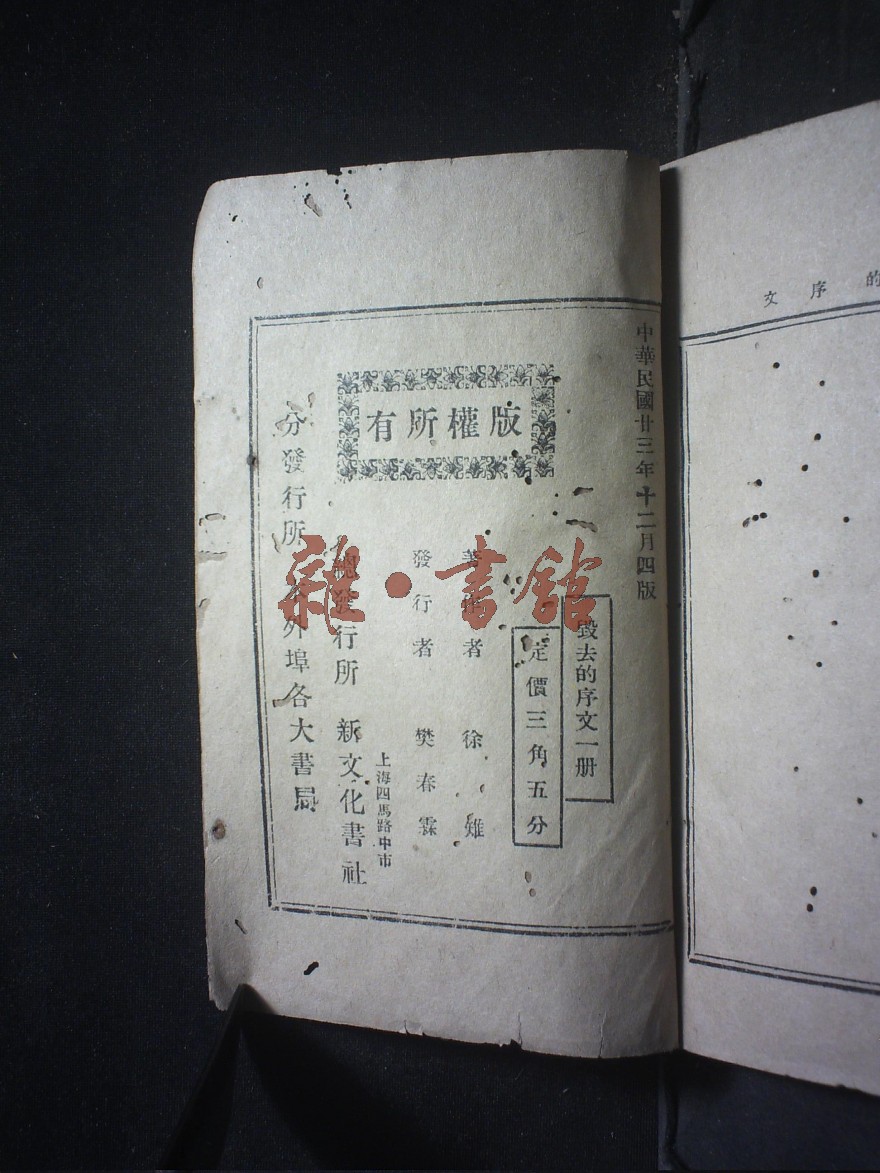 的序文
中華民國廿三年十二月四版
毀去的序文一册
定價三角五分
版權所有
著作者 徐雉
發行者 樊春霖
上海四馬路中市
總發行所 新文化書社
分發行所 本外埠各大書局
雜·書館